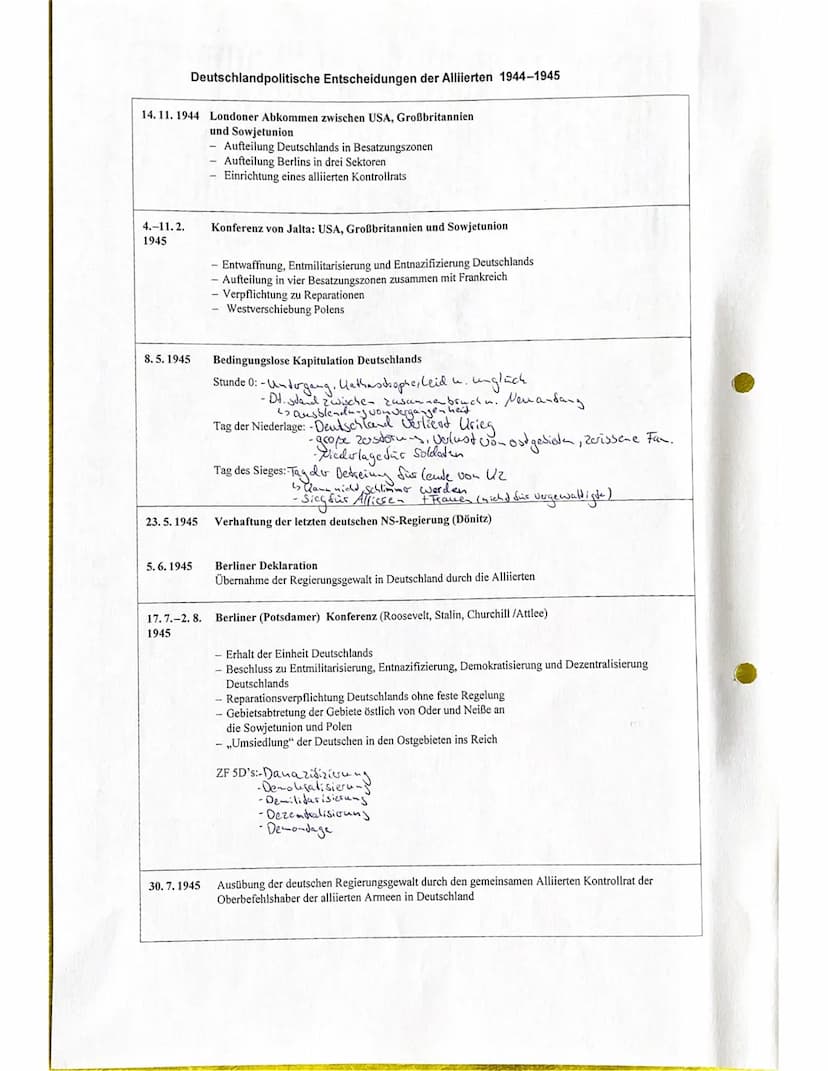 Deutschlandpolitische Entscheidungen der Alliierten 1944–1945
14. 11. 1944 Londoner Abkommen zwischen USA, Großbritannien
und Sowjetunion
– Aufteilung Deutschlands in Besatzungszonen
– Aufteilung Berlins in drei Sektoren
– Einrichtung eines alliierten Kontrollrats
4.–11. 2. Konferenz von Jalta: USA, Großbritannien und Sowjetunion
1945
– Entwaffnung, Entmilitarisierung und Entnazifizierung Deutschlands
– Aufteilung in vier Besatzungszonen zusammen mit Frankreich
– Verpflichtung zu Reparationen
– Westverschiebung Polens
8. 5. 1945 Bedingungslose Kapitulation Deutschlands
Stunde 0: - Untergang, Kathastrophe, Leid u. unglück
- Dt. stand zwischen zusammenbruch u. Neuanfang
↳ ausblendung von vergangenheit
Tag der Niederlage: - Deutschland verliert Krieg
- große zerstörung, verlust von ostgebieten, zerissene Fam.
- Niederlage für Soldaten
Tag des Sieges: Tag der Befreiung für Leute von KZ
↳ kann nicht schlimmer werden
- Sieg für Alliesen + Frauen (nicht für vergewaltigte)
23. 5. 1945 Verhaftung der letzten deutschen NS-Regierung (Dönitz)
5. 6. 1945 Berliner Deklaration
Übernahme der Regierungsgewalt in Deutschland durch die Alliierten
17. 7.–2. 8. Berliner (Potsdamer) Konferenz (Roosevelt, Stalin, Churchill /Attlee)
1945
– Erhalt der Einheit Deutschlands
– Beschluss zu Entmilitarisierung, Entnazifizierung, Demokratisierung und Dezentralisierung
Deutschlands
– Reparationsverpflichtung Deutschlands ohne feste Regelung
– Gebietsabtretung der Gebiete östlich von Oder und Neiße an
die Sowjetunion und Polen
– „Umsiedlung“ der Deutschen in den Ostgebieten ins Reich
ZF 5D's: - Danazifizirung
- Demokratisierung
- Demilitarisierung
- Dezentralisirung
- Demondage
30. 7. 1945 Ausübung der deutschen Regierungsgewalt durch den gemeinsamen Alliierten Kontrollrat der
Oberbefehlshaber der alliierten Armeen in Deutschland